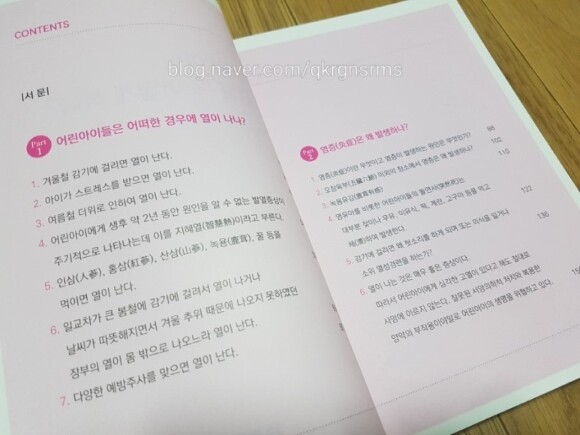 CONTENTS
blog.naver.com/qkrgnsrms
|서 문|
Part 1 어린아이들은 어떠한 경우에 열이 나나?
1. 겨울철 감기에 걸리면 열이 난다.
2. 아이가 스트레스를 받으면 열이 난다.
3. 여름철 더위로 인하여 열이 난다.
4. 어린아이에게 생후 약 2년 동안 원인을 알 수 없는 발열증상이
주기적으로 나타나는데 이를 지혜열(智慧熱)이라고 부른다.
5. 인삼(人蔘), 홍삼(紅蔘), 산삼(山蔘), 녹용(鹿茸), 꿀 등을
먹이면 열이 난다.
6. 일교차가 큰 봄철에 감기에 걸려서 열이 나거나
날씨가 따뜻해지면서 겨울 추위 때문에 나오지 못하였던
장부의 열이 몸 밖으로 나오느라 열이 난다.
7. 다양한 예방주사를 맞으면 열이 난다.
Part 2 염증(炎症)은 왜 발생하나?
1. 염증(炎症)이란 무엇이고 염증이 발생하는 원인은 무엇인가? 98
2. 오장육부(五臟六腑) 이외의 장소에서 염증은 왜 발생하나? 102
3. 녹용유감(鹿茸有感) 110
4. 영유아를 비롯한 어린아이들의 돌연사(突然死)는
대부분 찰이나 우유, 이유식, 떡, 계란, 고구마 등을 먹고
체(滯)하며 발생한다. 122
5. 감기에 걸리면 왜 헛소리를 하게 되며 또는 의식을 잃거나
소위 열성경련을 하는가? 136
6. 열이 나는 것은 매우 좋은 증상이다.
따라서 어린아이에게 심각한 고열이 있다고 해도 절대로
사망에 이르지 않는다. 잘못된 서양의학적 처치와 복용한
양약의 부작용이야말로 어린아이의 생명을 위협하고 있다.